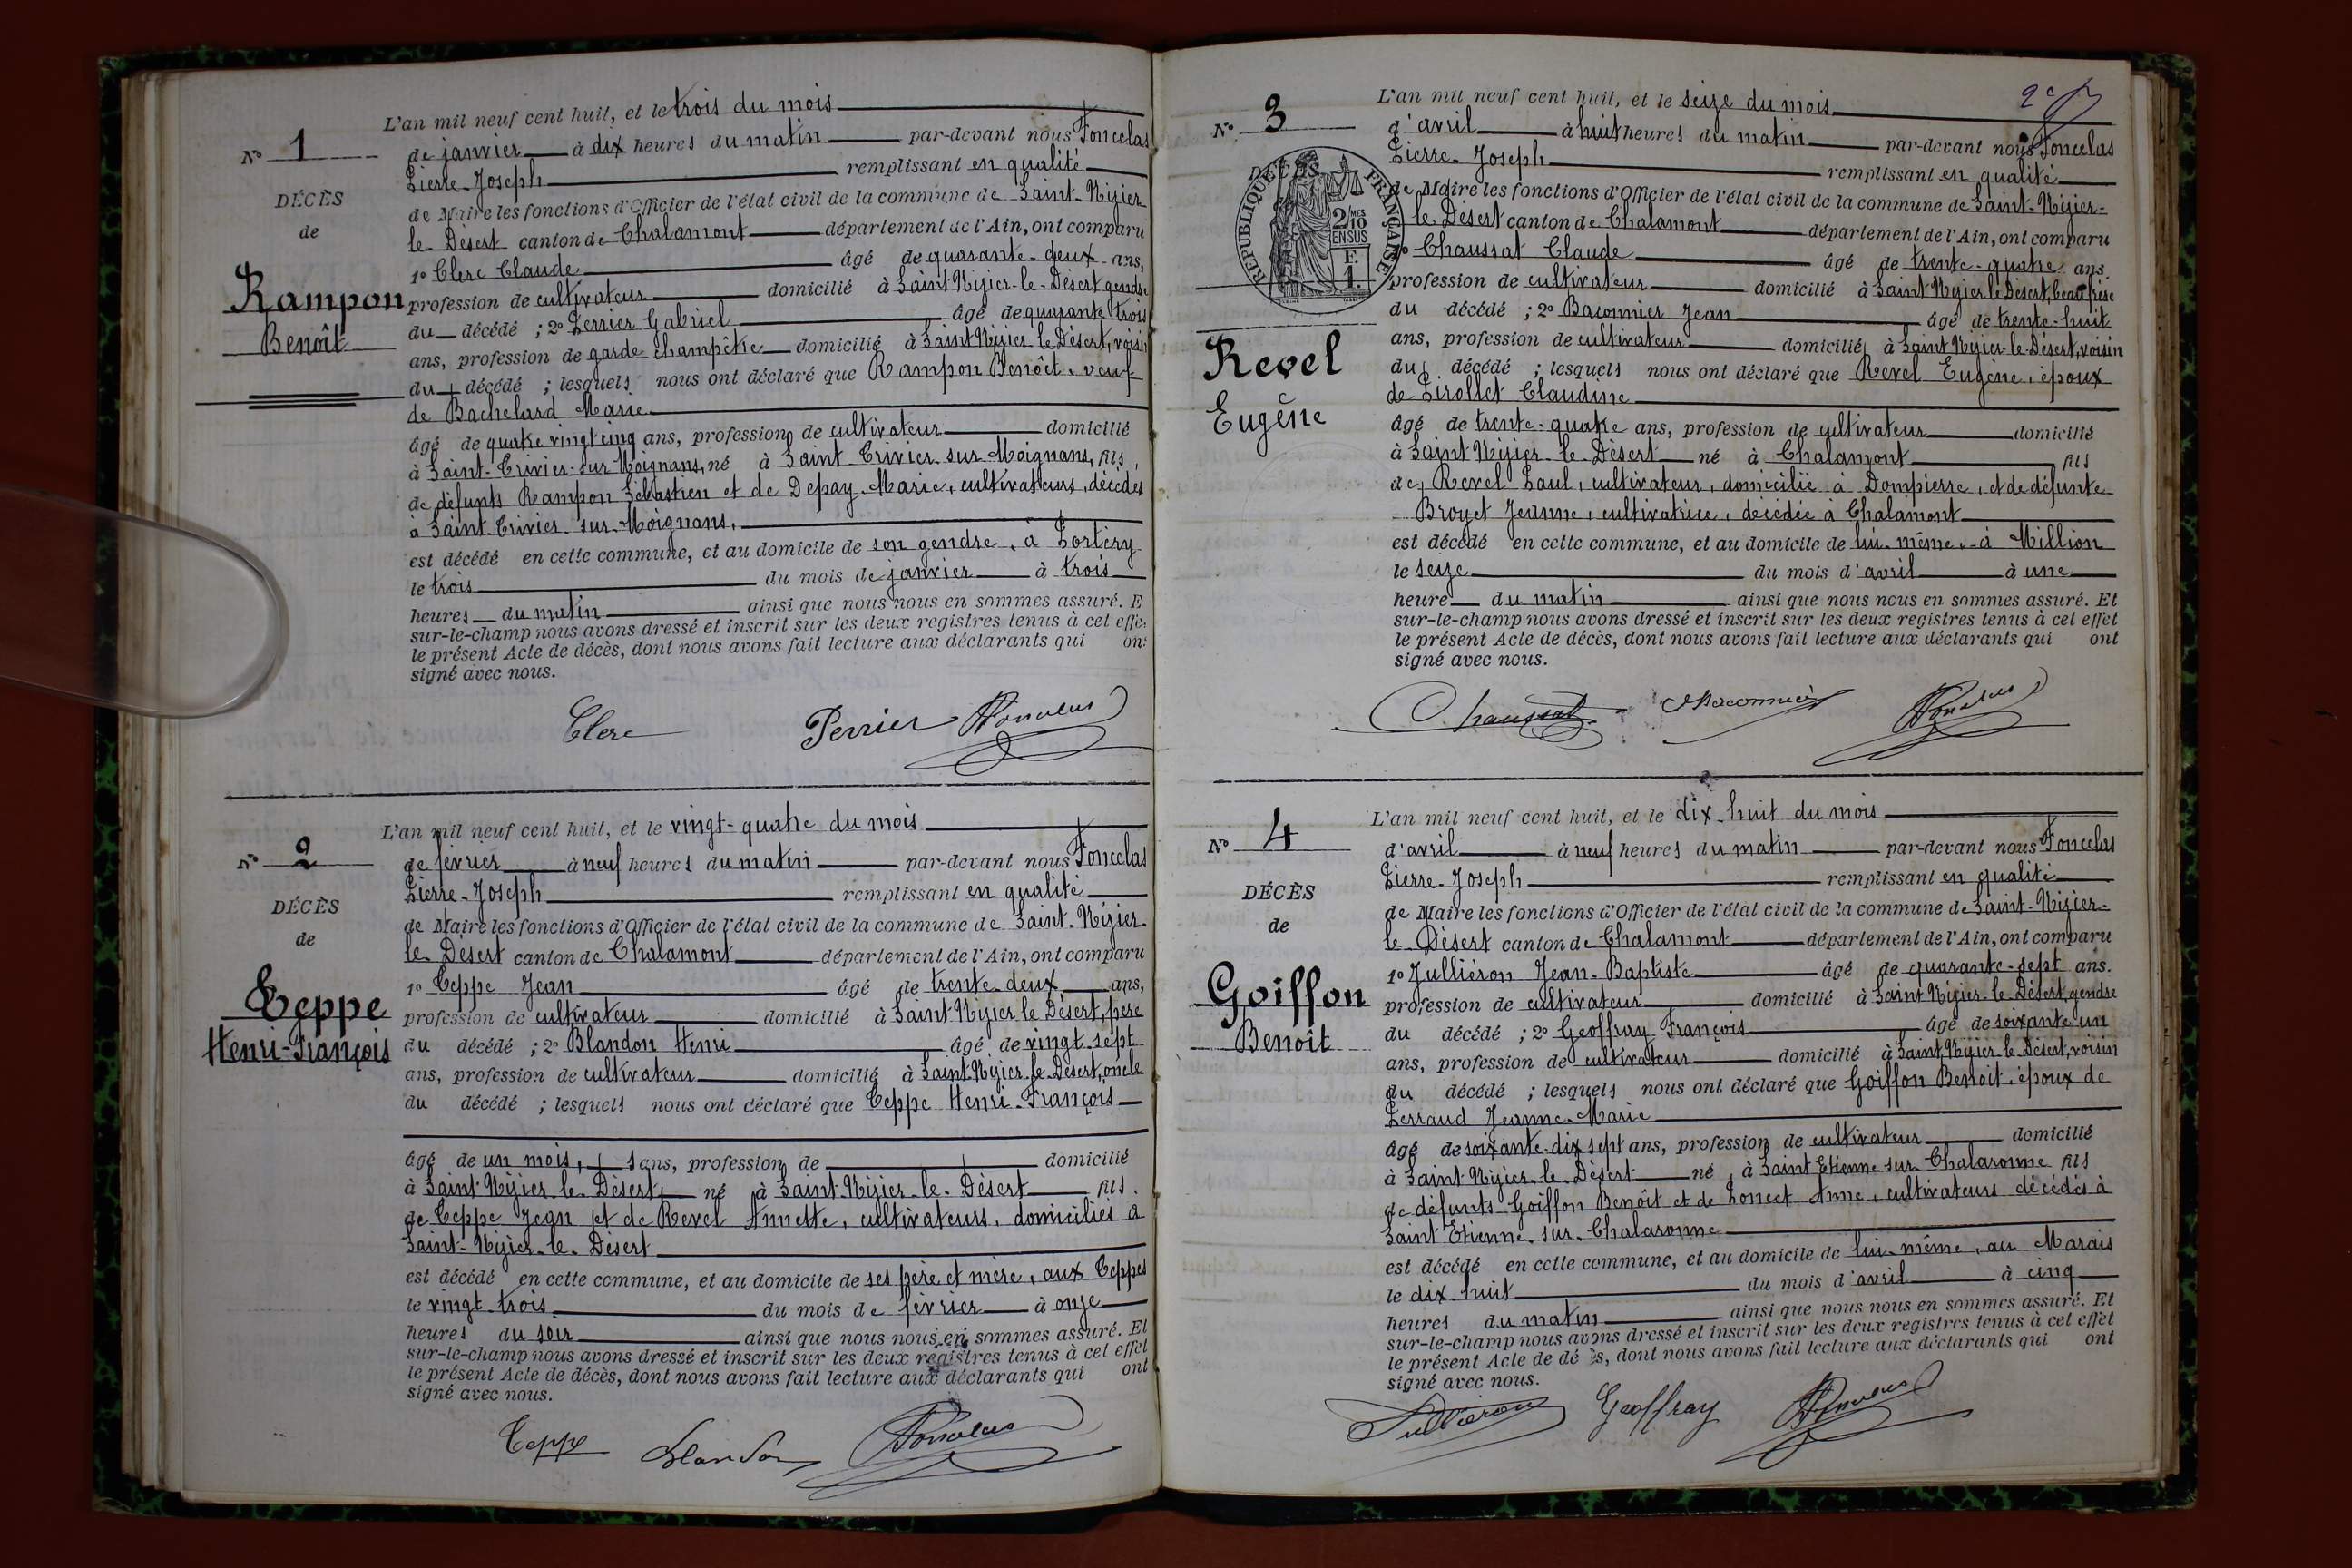 N° 1
DÉCÈS
de
Rampon
Benoît
L'an mil neuf cent huit, et le trois du mois
de janvier à dix heures du matin par-devant nous Foncelas
Pierre-Joseph remplissant en qualité
de Maire les fonctions d'Officier de l'état civil de la commune de Saint-Nizier
le-Désert canton de Chalamont département de l'Ain, ont comparu
1° Clerc Claude âgé de quarante-deux ans,
profession de cultivateur domicilié à Saint-Nizier-le-Désert gendre
du décédé ; 2° Perrier Gabriel âgé de quarante trois
ans, profession de garde champêtre domicilié à Saint Nizier le Désert, voisin
du décédé ; lesquels nous ont déclaré que Rampon Benoît, veuf
de Bachelard Marie
âgé de quatre vingt cinq ans, profession de cultivateur domicilié
à Saint-Trivier-sur-Moignans, né à Saint-Trivier-sur-Moignans, fils
de défunts Rampon Sébastien et de Depay Marie, cultivateurs, décédés
à Saint-Trivier-sur-Moignans,
est décédé en cette commune, et au domicile de son gendre, à Portéry
le trois du mois de janvier à trois
heures du matin ainsi que nous nous en sommes assuré. E
sur-le-champ nous avons dressé et inscrit sur les deux registres tenus à cet effe
le présent Acte de décès, dont nous avons fait lecture aux déclarants qui on
signé avec nous.
Clerc Perrier Foncelas
N° 2
DÉCÈS
de
Teppe
Henri-François
L'an mil neuf cent huit, et le vingt-quatre du mois
de février à neuf heures du matin par-devant nous Foncelas
Pierre-Joseph remplissant en qualité
de Maire les fonctions d'Officier de l'état civil de la commune de Saint-Nizier-
le-Désert canton de Chalamont département de l'Ain, ont comparu
1° Teppe Jean âgé de trente-deux ans,
profession de cultivateur domicilié à Saint-Nizier le Désert, père
du décédé ; 2° Blandon Henri âgé de vingt-sept
ans, profession de cultivateur domicilié à Saint-Nizier-le-Désert, oncle
du décédé ; lesquels nous ont déclaré que Teppe Henri-François
âgé de un mois, sans, profession de domicilié
à Saint-Nizier-le-Désert, né à Saint-Nizier-le-Désert fils
de Teppe Jean et de Revel Annette, cultivateurs, domiciliés à
Saint-Nizier-le-Désert
est décédé en cette commune, et au domicile de ses père et mère, aux Teppes
le vingt-trois du mois de février à onze
heures du soir ainsi que nous nous en sommes assuré. Et
sur-le-champ nous avons dressé et inscrit sur les deux registres tenus à cet effet
le présent Acte de décès, dont nous avons fait lecture aux déclarants qui ont
signé avec nous.
Teppe Blandon Foncelas
N° 3
DÉCÈS
RÉPUBLIQUE FRANÇAISE
2 MES
10
EN SUS
F.
1.
Revel
Eugène
L'an mil neuf cent huit, et le seize du mois
d'avril à huit heures du matin par-devant nous Foncelas
Pierre-Joseph remplissant en qualité
de Maire les fonctions d'Officier de l'état civil de la commune de Saint-Nizier-
le-Désert canton de Chalamont département de l'Ain, ont comparu
1° Chaussat Claude âgé de trente-quatre ans
profession de cultivateur domicilié à Saint Nizier le Désert, beau frère
du décédé ; 2° Baconnier Jean âgé de trente-huit
ans, profession de cultivateur domicilié à Saint Nizier-le-Désert, voisin
du décédé ; lesquels nous ont déclaré que Revel Eugène, époux
de Pirollet Claudine
âgé de trente-quatre ans, profession de cultivateur domicilié
à Saint-Nizier-le-Désert né à Chalamont fils
de Revel Paul, cultivateur, domicilié à Dompierre, et de défunte
Broyet Jeanne, cultivatrice, décédée à Chalamont
est décédé en cette commune, et au domicile de lui-même, à Million
le seize du mois d'avril à une
heure du matin ainsi que nous nous en sommes assuré. Et
sur-le-champ nous avons dressé et inscrit sur les deux registres tenus à cet effet
le présent Acte de décès, dont nous avons fait lecture aux déclarants qui ont
signé avec nous.
Chaussat Baconnier Foncelas
N° 4
DÉCÈS
de
Goiffon
Benoît
L'an mil neuf cent huit, et le dix-huit du mois
d'avril à neuf heures du matin par-devant nous Foncelas
Pierre-Joseph remplissant en qualité
de Maire les fonctions d'Officier de l'état civil de la commune de Saint-Nizier-
le-Désert canton de Chalamont département de l'Ain, ont comparu
1° Julliéron Jean-Baptiste âgé de quarante-sept ans.
profession de cultivateur domicilié à Saint Nizier-le-Désert, gendre
du décédé ; 2° Geoffray François âgé de soixante un
ans, profession de cultivateur domicilié à Saint-Nizier-le-Désert, voisin
du décédé ; lesquels nous ont déclaré que Goiffon Benoît, époux de
Perraud Jeanne-Marie
âgé de soixante-dix sept ans, profession de cultivateur domicilié
à Saint-Nizier-le-Désert né à Saint Etienne sur Chalaronne fils
de défunts Goiffon Benoît et de Poncet Anne, cultivateurs décédés à
Saint Etienne-sur-Chalaronne
est décédé en cette commune, et au domicile de lui-même, au Marais
le dix-huit du mois d'avril à cinq
heures du matin ainsi que nous nous en sommes assuré. Et
sur-le-champ nous avons dressé et inscrit sur les deux registres tenus à cet effet
le présent Acte de dé ès, dont nous avons fait lecture aux déclarants qui ont
signé avec nous.
Julliéron Geoffray Foncelas